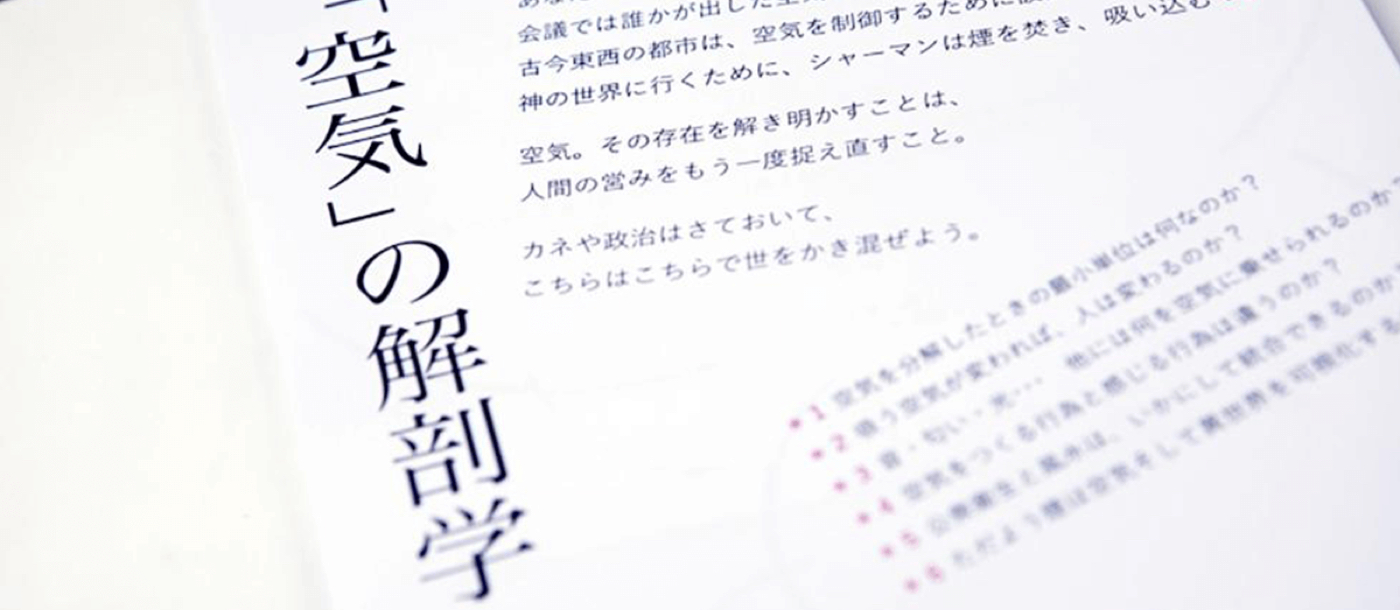 「空気」の解剖学
会議では誰かが出した
古今東西の都市は、空気を制御するために
神の世界に行くために、シャーマンは煙を焚き、吸い込む
空気。その存在を解き明かすことは、
人間の営みをもう一度捉え直すこと。
カネや政治はさておいて、
こちらはこちらで世をかき混ぜよう。
*1 空気を分解したときの最小単位は何なのか？
*2 吸う空気が変われば、人は変わるのか？
*3 音・匂い・光… 他には何を空気に乗せられるのか？
*4 空気をつくる行為と感じる行為は違うのか？
*5 公衆衛生と風水は、いかにして統合できるのか
*6 ただよう煙は空気そして異世界を可視化する